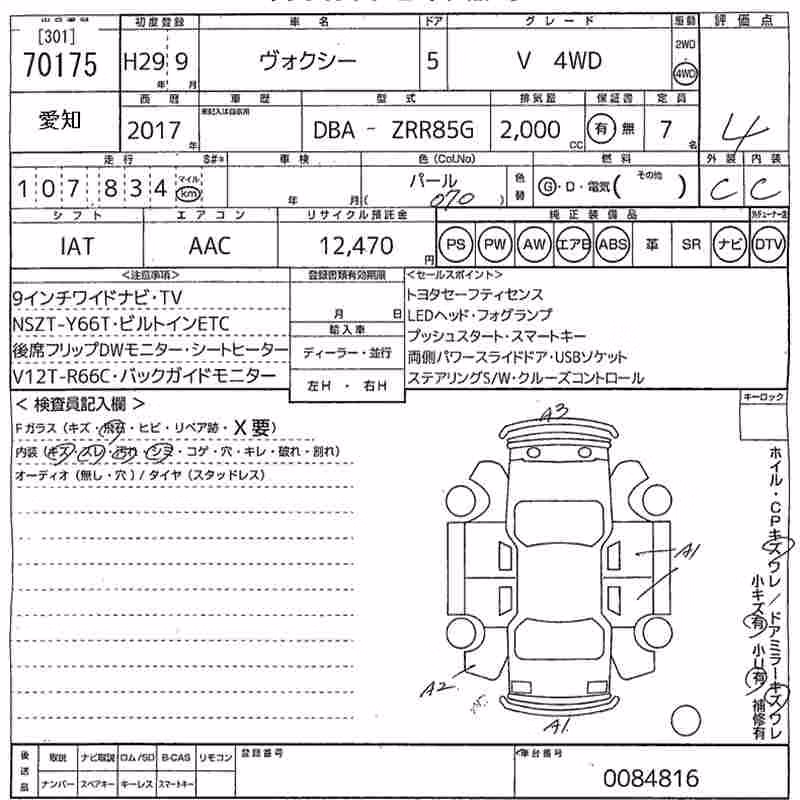 [301]
70175
初度登録
車名
ドア
グレード
駆動
評価点
H29 9
年 月
ヴォクシー
5
V 4WD
2WD
4WD
愛知
西暦
車歴
型式
排気量
保証書
定員
2017
年
DBA - ZRR85G
2,000
CC
有 無
7
名
4
走行
S#*
車検
色 (Col.No)
燃料
外装 内装
107834
マイル
km
年 月
パール
070
色替
G・D・電気 (その他 )
C C
シフト
エアコン
リサイクル預託金
純正装備品
IAT
AAC
12,470
円
PS PW AW エアB ABS 革 SR ナビ DTV
<注意事項>
登録書類有効期限
<セールスポイント>
9インチワイドナビ・TV
NSZT-Y66T・ビルトインETC
後席フリップDWモニター・シートヒーター
V12T-R66C・バックガイドモニター
月 日
輸入車
ディーラー・並行
左H ・ 右H
トヨタセーフティセンス
LEDヘッド・フォグランプ
プッシュスタート・スマートキー
両側パワースライドドア・USBソケット
ステアリングS/W・クルーズコントロール
< 検査員記入欄 >
キーロック
Fガラス (キズ・飛石・ヒビ・リペア跡・X要)
内装 (キズ・スレ・汚れ・シミ・コゲ・穴・キレ・破れ・割れ)
オーディオ (無し・穴) / タイヤ (スタッドレス)
A3
A1
A2
A1
ホイル・CPキズワレ/ドアミラーキズワレ
小キズ有 小U有 補修有
後送品
取説 ナビ取説 ロム/SD B-CAS リモコン
ナンバー スペアキー キーレス スマートキー
登録番号
車台番号
0084816